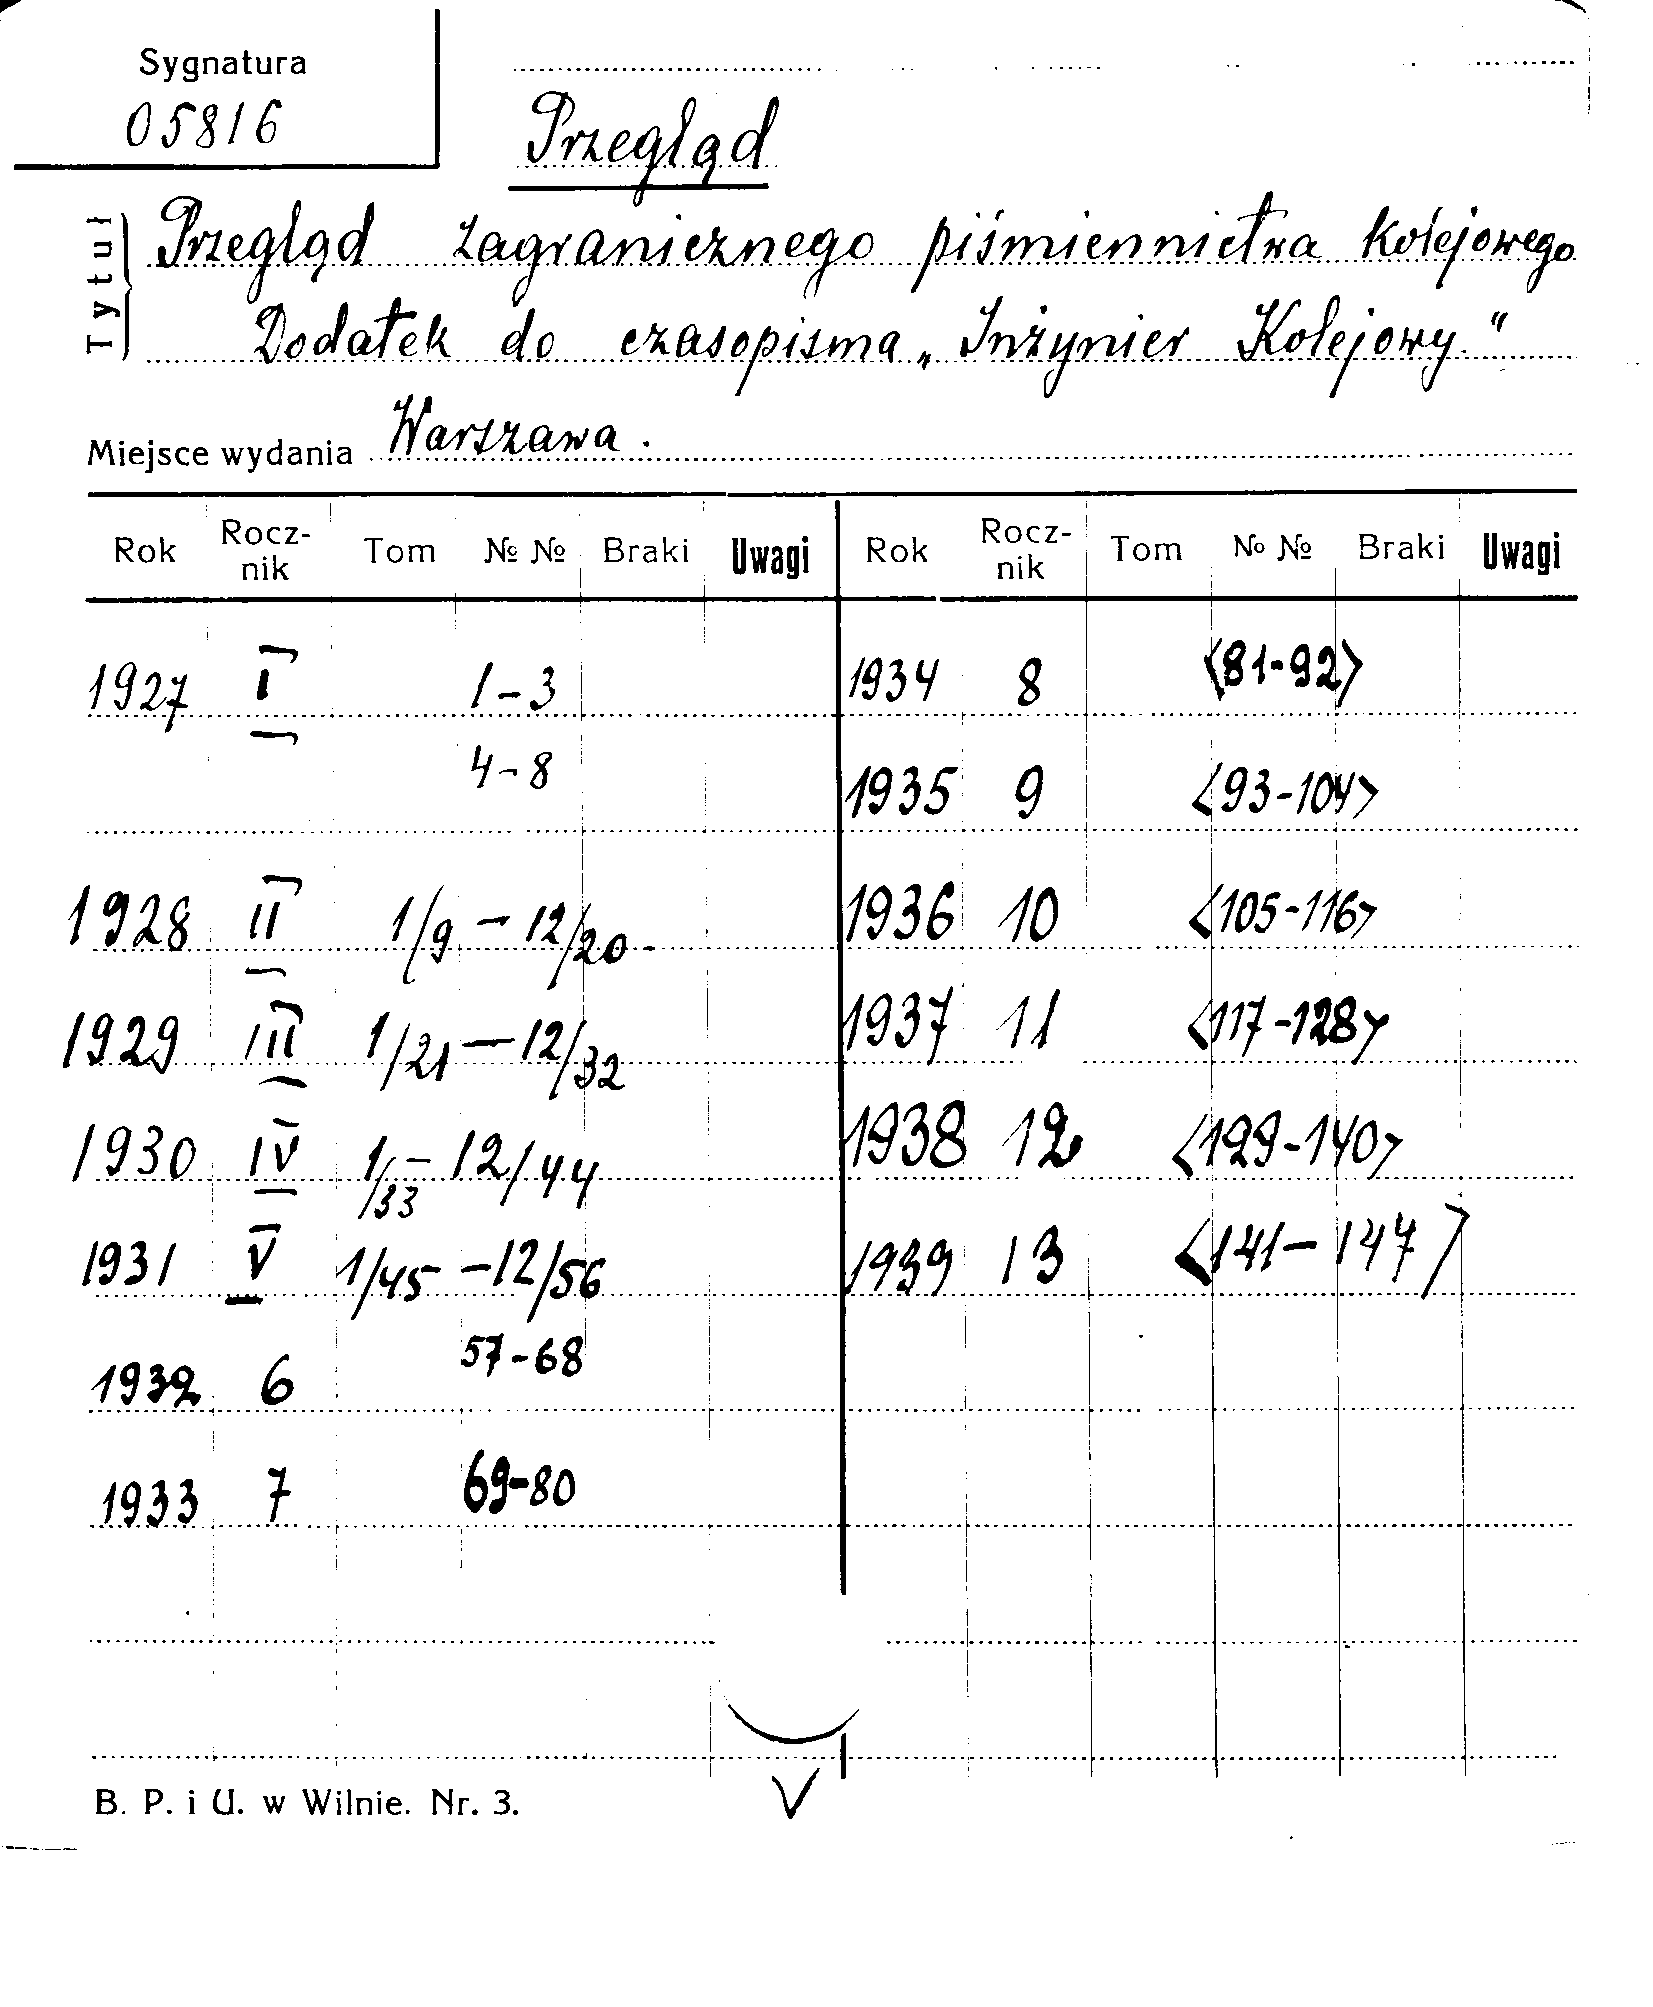 Sygnatura
05816
Przegląd
Tytuł
Przegląd zagranicznego piśmiennictwa kolejowego
Dodatek do czasopisma „Inżynier Kolejowy."
Miejsce wydania Warszawa.
Rok Rocz-nik Tom № № Braki Uwagi Rok Rocz-nik Tom № № Braki Uwagi
1927 I 1-3 1934 8 <81-92>
4-8
1935 9 <93-104>
1928 II 1/9 - 12/20. 1936 10 <105-116>
1929 III 1/21 - 12/32 1937 11 <117-128>
1930 IV 1/33 - 12/44 1938 12 <129-140>
1931 V 1/45 - 12/56 1939 13 <141-147>
1932 6 57-68
1933 7 69-80
B. P. i U. w Wilnie. Nr. 3.
V